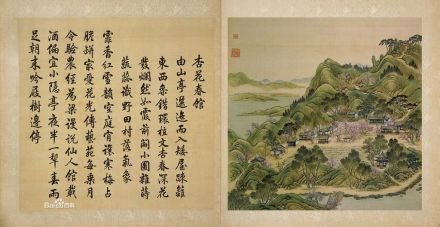 杏花春館
由山亭邐迤而入矮屋疎籬
東西參錯環植文杏春深花
發爛然如霞前闢小圃雜蒔
蔬蓏識野田村落氣象
霏香紅雪韻空庭肯讓寒梅占
膽缾最愛花光傳藝苑每乗月
令驗農經爲梁謾説仙人館載
酒偏宜小隱亭夜半一犂春雨
足朝來吟屐樹邊停